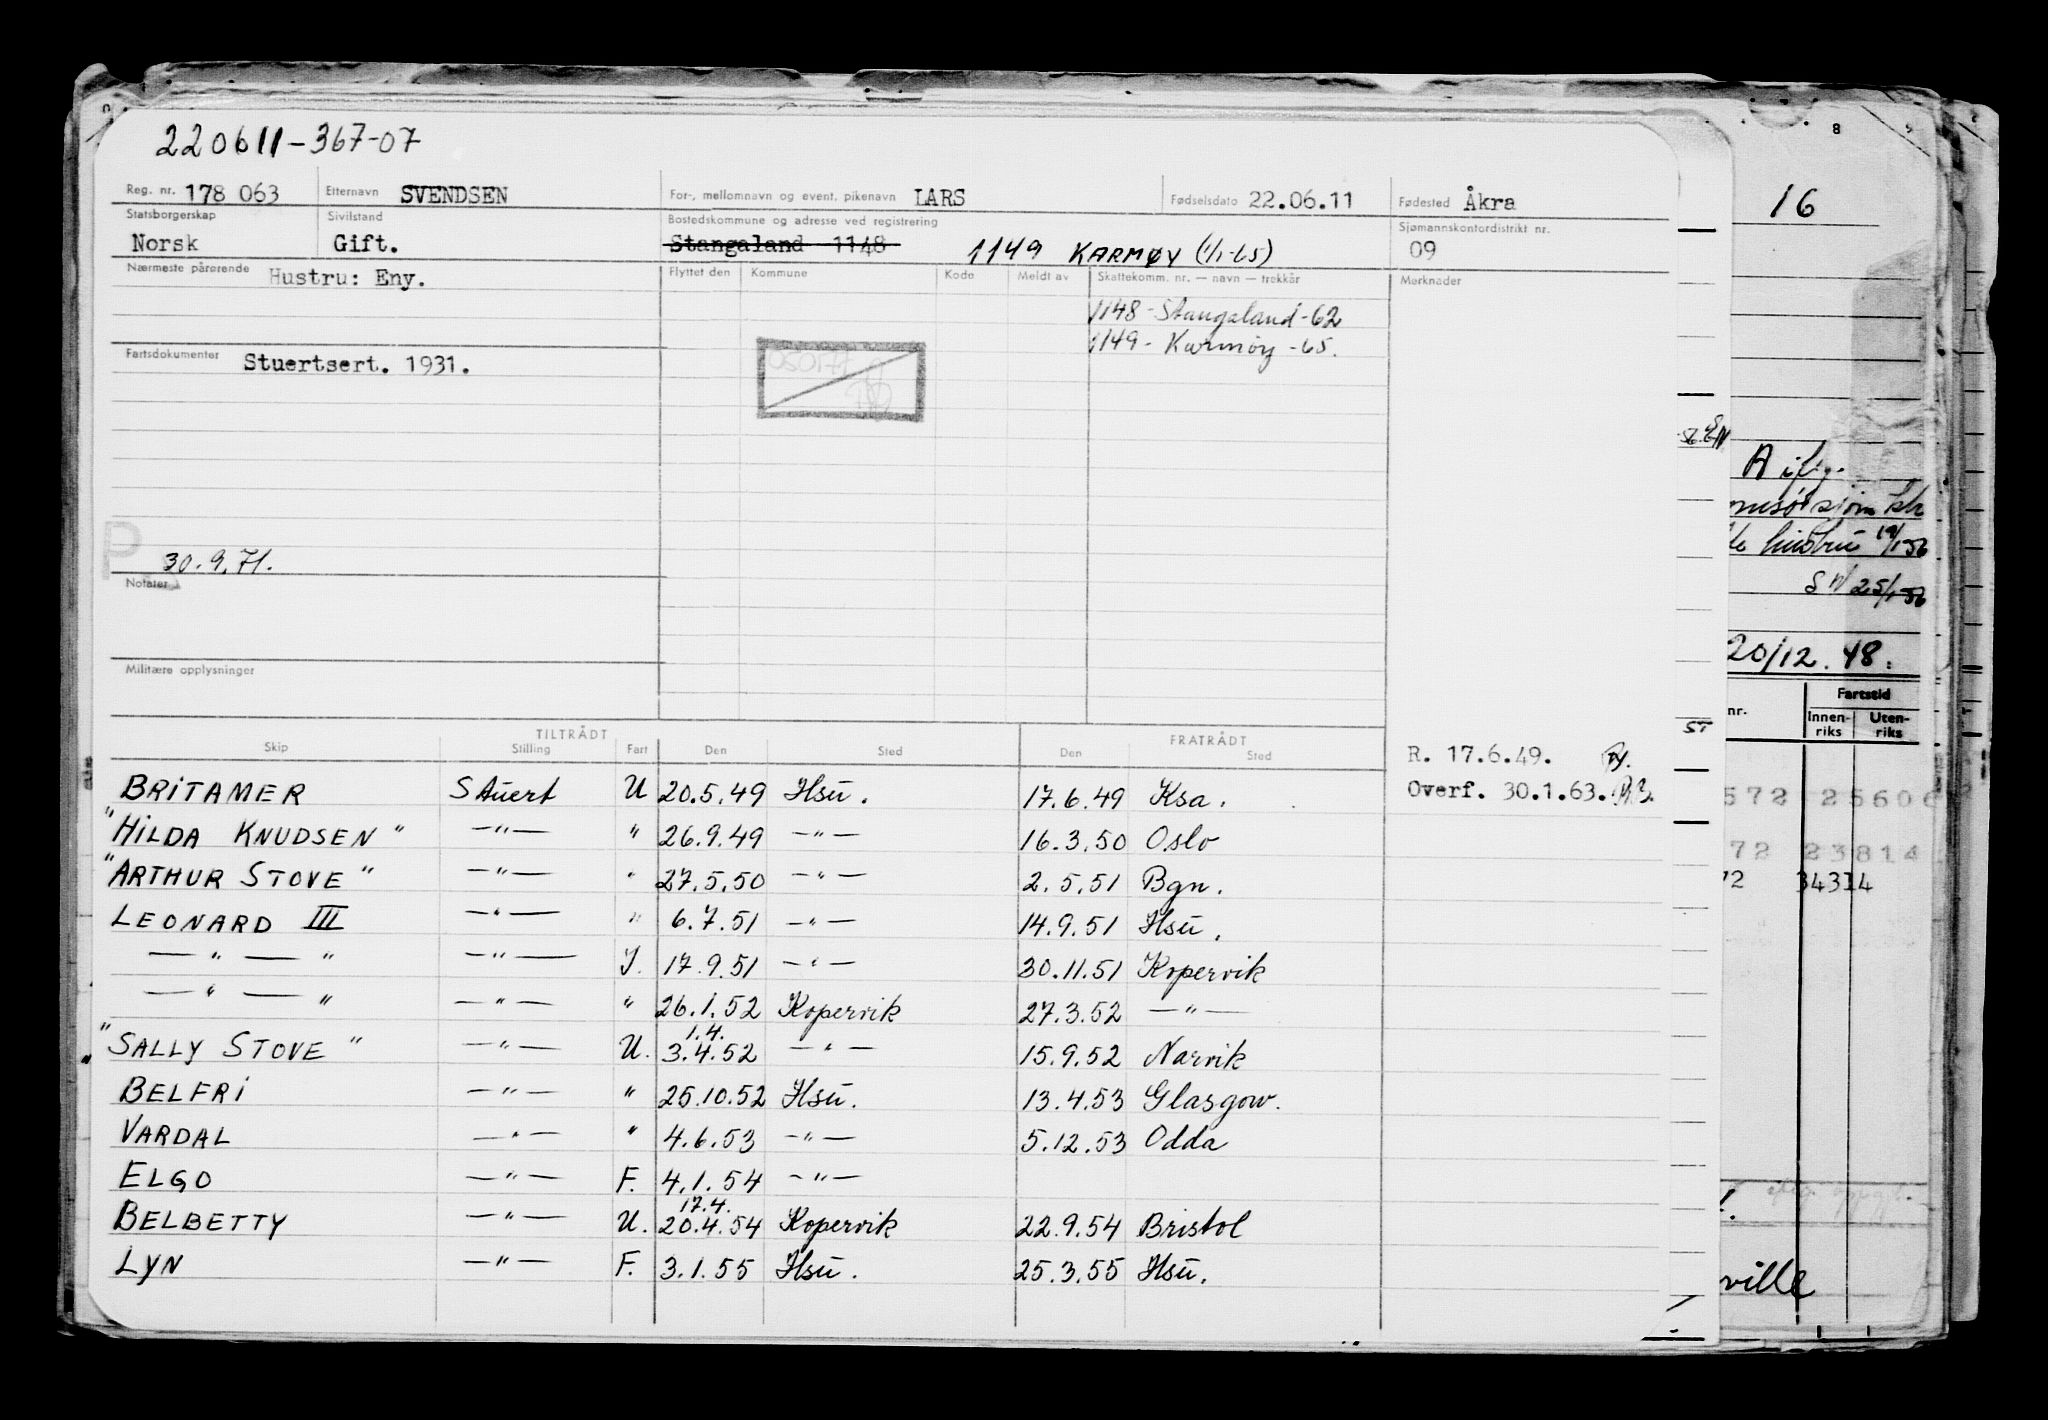 220611-367-07
Reg. nr. 178 063 Etternavn SVENDSEN For-, mellomnavn og event. pikenavn LARS Fødselsdato 22.06.11 Fødested Åkra
Statsborgerskap Sivilstand Bostedskommune og adresse ved registrering Sjømannskontordistrikt nr.
Norsk Gift. Stangaland 1148 1149 KARMØY (1/1-65) 09
Nærmeste pårørende Hustru: Eny. Flyttet den Kommune Kode Meldt av Skattekomm. nr. — navn — trekkår Merknader
1148 - Stangaland - 62
1149 - Karmøy - 65.
Fartsdokumenter Stuertsert. 1931.
P
30.9.71.
Notater
Militære opplysninger
TILTRÅDT FRATRÅDT
Skip Stilling Fart Den Sted Den Sted
R. 17.6.49.
Overf. 30.1.63.
BRITAMER Stuert U 20.5.49 Hsu. 17.6.49 Ksa.
"HILDA KNUDSEN" —"— " 26.9.49 —"— 16.3.50 Oslo
"ARTHUR STOVE" —"— " 27.5.50 —"— 2.5.51 Bgn.
LEONARD III —"— " 6.7.51 —"— 14.9.51 Hsu.
—"— " —"— I. 17.9.51 —"— 30.11.51 Kopervik
—"— " —"— " 26.1.52 Kopervik 27.3.52 —"—
1.4.
"SALLY STOVE" —"— U. 3.4.52 —"— 15.9.52 Narvik
BELFRI —"— " 25.10.52 Hsu. 13.4.53 Glasgow.
VARDAL —"— " 4.6.53 —"— 5.12.53 Odda
ELGO —"— F. 4.1.54 —"—
17.4.
BELBETTY —"— U. 20.4.54 Kopervik 22.9.54 Bristol
LYN —"— F. 3.1.55 Hsu. 25.3.55 Hsu.
8
16
A
hustru 19/1-56
25/1-56
20/12.48.
Fartstid
nr. Innen- Uten-
riks riks
ST
572 25606
72 23814
72 34314
ville